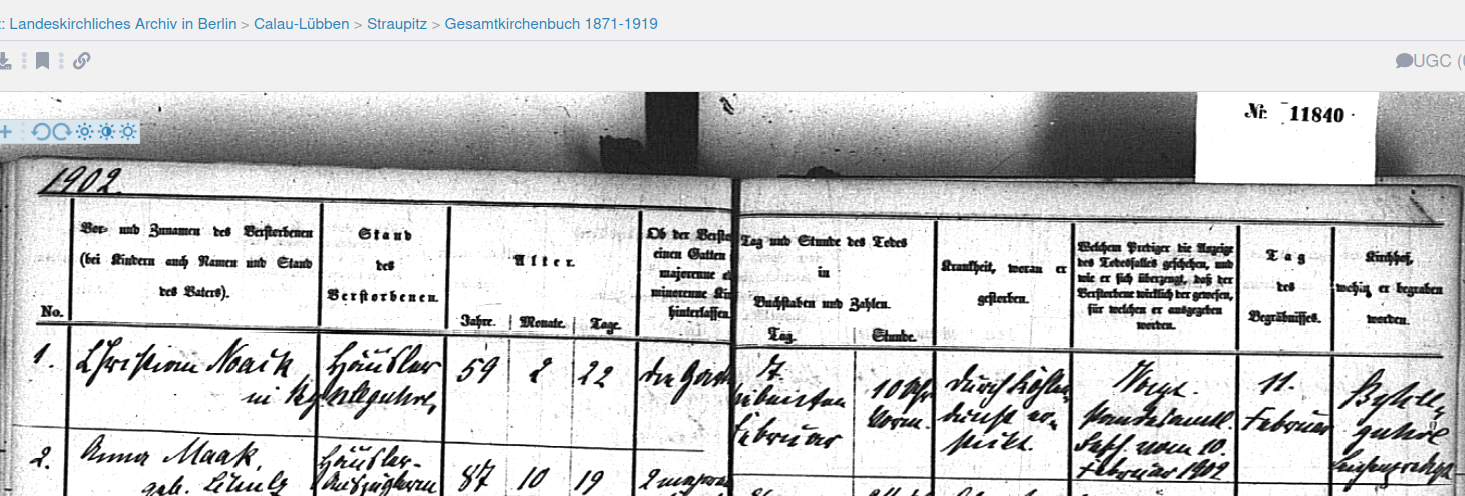 : Landeskirchliches Archiv in Berlin > Calau-Lübben > Straupitz > Gesamtkirchenbuch 1871-1919
UGC (
Nr. 11840
1902.
No.
Vor- und Zunamen des Verstorbenen
(bei Kindern auch Namen und Stand
des Vaters).
Stand
des
Verstorbenen.
Alter.
Jahre. Monate. Tage.
Ob der Versto
einen Gatten
majorenne
minorenne Kin
hinterlassen
Tag und Stunde des Todes
in
Buchstaben und Zahlen.
Tag. Stunde.
Krankheit, woran er
gestorben.
Welchem Prediger die Anzeige
des Todesfalles geschehen, und
wie er sich überzeugt, daß der
Verstorbene wirklich der gewesen,
für welchen er ausgegeben
worden.
Tag
des
Begräbnisses.
Kirchhof,
wohin er begraben
worden.
1.
Christian Noack
in
Häusler
59 2 22
die
7.
siebenten
Februar
10 Uhr
Vorm.
durch Kohlen-
dunst er-
stickt.
Standesamtl.
vom 10.
Februar 1902
11.
Februar
2.
Anna Maak,
geb.
Häusler-
87 10 19
2